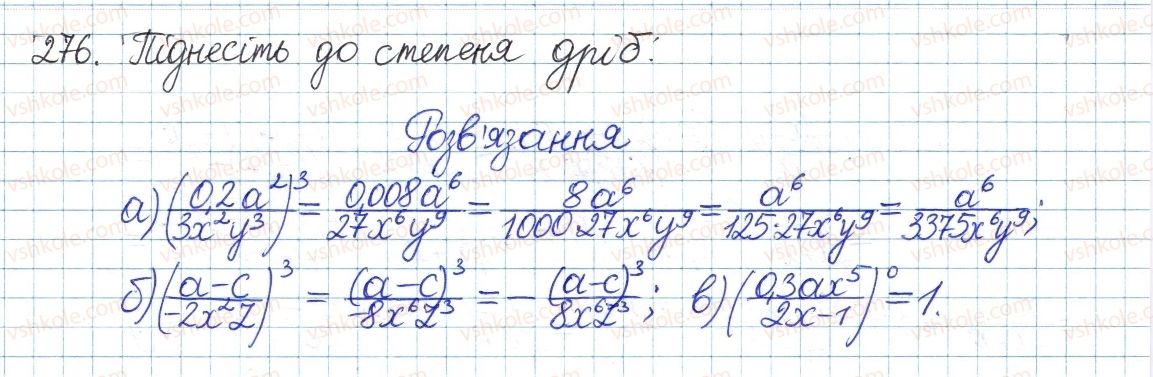 276. Піднесіть до степеня дріб:
Розв'язання
а) (0,2a²/3x²y³)³ = 0,008a⁶/27x⁶y⁹ = 8a⁶/1000·27x⁶y⁹ = a⁶/125·27x⁶y⁹ = a⁶/3375x⁶y⁹;
б) (a−c/−2x²z)³ = (a−c)³/−8x⁶z³ = −(a−c)³/8x⁶z³; в) (0,3ax⁵/2x−1)⁰ = 1.
vshkole.com